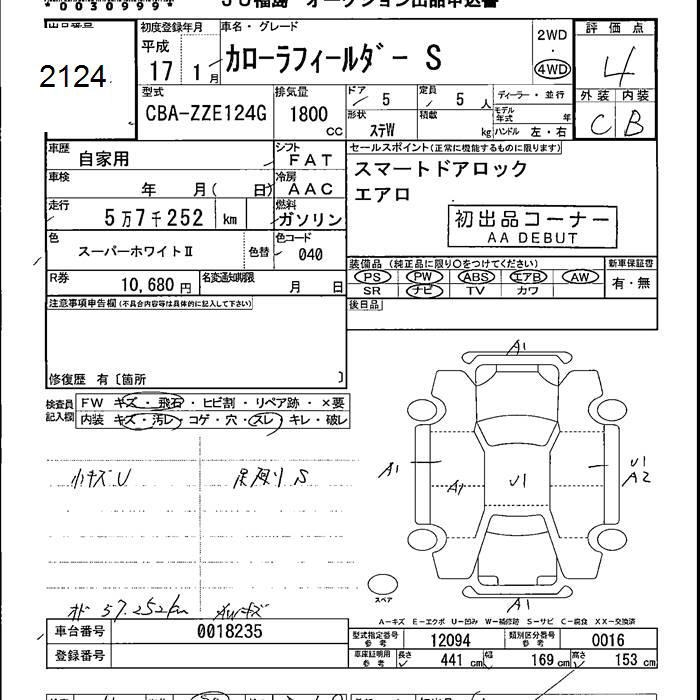 *00309994*
JU福島 オークション出品申込書
出品番号
2124
初度登録年月
平成
17 1月
車名・グレード
カローラフィールダー S
2WD
4WD
評価点
4
外装 内装
C B
型式
CBA-ZZE124G
排気量
1800
CC
ドア
5
定員
5 人
形状
ステW
積載
kg
ディーラー・並行
モデル年式 年
ハンドル 左・右
車歴
自家用
シフト
FAT
車検
年 月( 日)
冷房
AAC
走行
5万7千252 km
燃料
ガソリン
色
スーパーホワイトⅡ
色替
色コード
040
R券
10,680円
名変通知期限
月 日
セールスポイント(正常に機能するものに限ります)
スマートドアロック
エアロ
初出品コーナー
AA DEBUT
装備品(純正品に限り○をつけてください)
PS PW ABS エアB AW
SR ナビ TV カワ
新車保証書
有・無
後日品
注意事項申告欄(不具合内容等は具体的に記入して下さい)
修復歴 有〔箇所 〕
検査員記入欄
FW キズ・飛石・ヒビ割・リペア跡・×要
内装 キズ・汚レ・コゲ・穴・スレ・キレ・破レ
小キズU 足廻りS
オド57.252km AWキズ
A1
A1
A1
U1
U1
A2
A1
スペア
A-キズ E-エクボ U-凹み W-補修跡 S-サビ C-腐食 XX-交換済
車台番号
0018235
登録番号
型式指定番号 参考
12094
類別区分番号 参考
0016
車庫証明用 参考
長さ 441 cm
幅 169 cm
高さ 153 cm